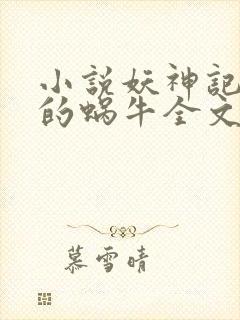 小説妖神記
的蝸牛全文
慕雪晴